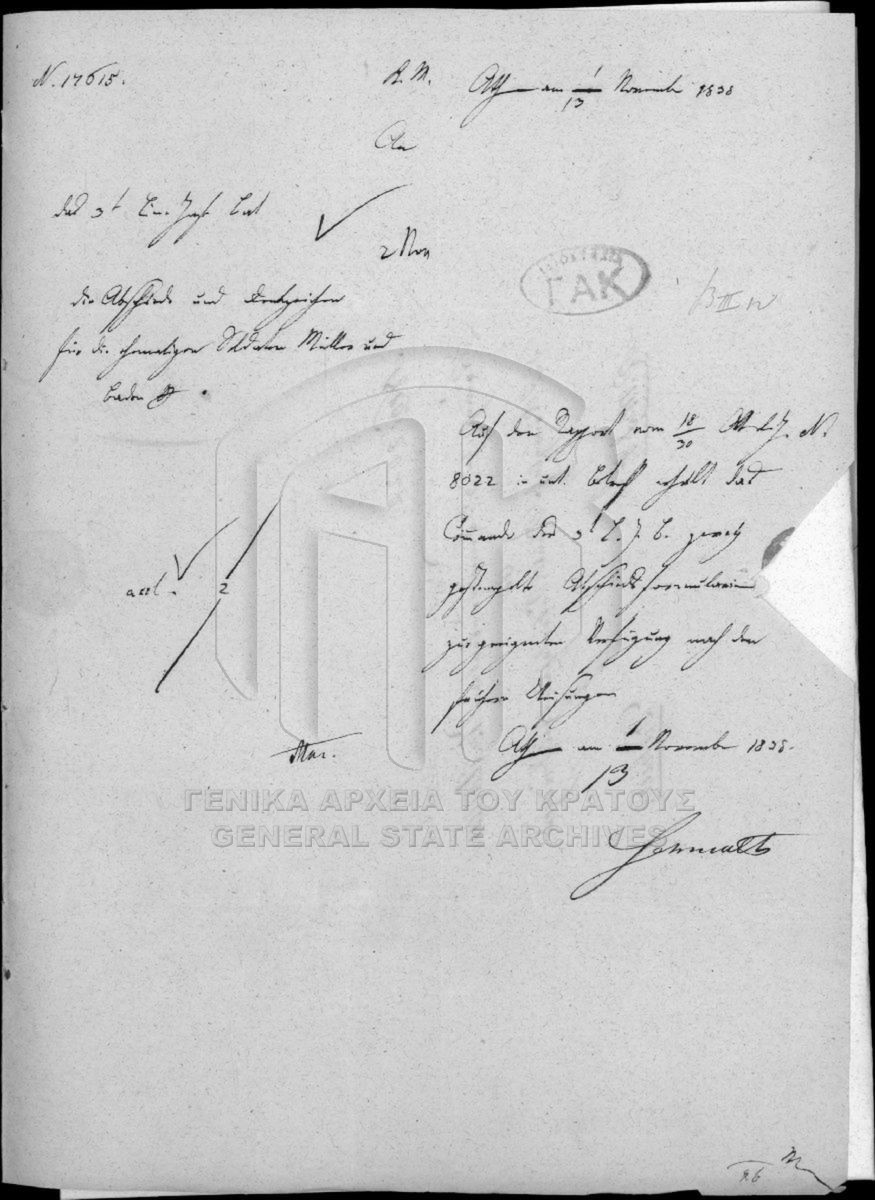 N. 17615.
K. M. Ath am 1/13 November 1838
An
das 3t Lin. Inft. Bat
2 Nov
die Abschiede und Denkzeichen
für die ehemaligen Soldaten Müller und
Baden
ΓΑΚ
B III
Auf den Rapport vom 18/30 Okt. l. J. N.
8022 in unt. Betreff erhält das
Commando des 3t L. I. B. zwey
gestempelte Abschiedsformularien
zur geeigneten Verfügung nach den
früheren Weisungen
2
Ath am 1/13 November 1838.
Mai.
ΓΕΝΙΚΑ ΑΡΧΕΙΑ ΤΟΥ ΚΡΑΤΟΥΣ
GENERAL STATE ARCHIVES
Schmaltz